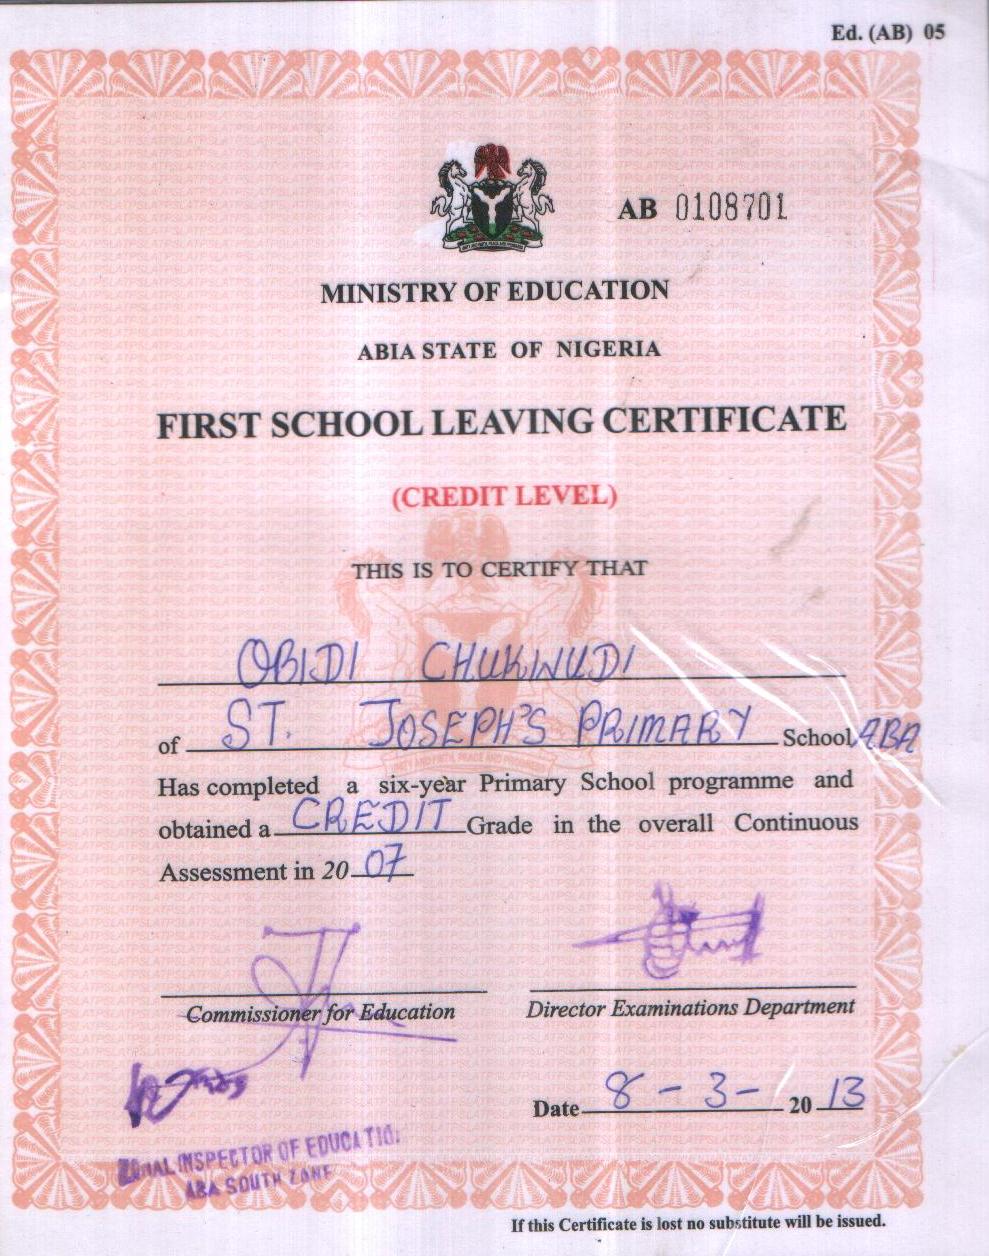 Ed. (AB) 05
AB 0108701
MINISTRY OF EDUCATION
ABIA STATE OF NIGERIA
FIRST SCHOOL LEAVING CERTIFICATE
(CREDIT LEVEL)
THIS IS TO CERTIFY THAT
OBIDI CHUKWUDI
of ST. JOSEPH'S PRIMARY School ABA
Has completed a six-year Primary School programme and
obtained a CREDIT Grade in the overall Continuous
Assessment in 20 07
Commissioner for Education
Director Examinations Department
Date 8 - 3 - 20 13
ZONAL INSPECTOR OF EDUCATION
ABA SOUTH ZONE
If this Certificate is lost no substitute will be issued.